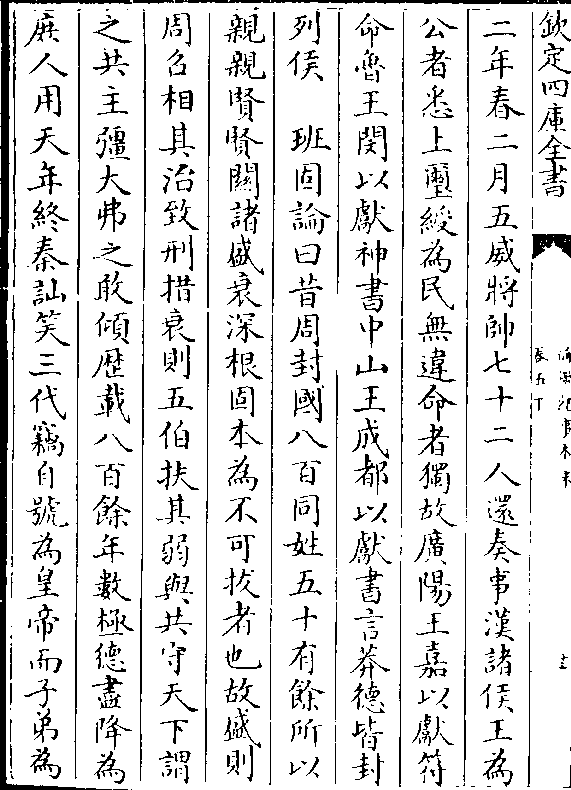 欽定四庫全書
二年春二月五威將帥七十二人還奏事漢諸侯王為
公者悉上璽綬為民無違命者獨故廣陽王嘉以獻符
命魯王閔以獻神書中山王成都以獻書言莽德皆封
列侯　班固論曰昔周封國八百同姓五十有餘所以
親親賢賢關諸盛衰深根固本為不可拔者也故盛則
周召相其治致刑措衰則五伯扶其弱與共守天下謂
之共主彊大弗之敢傾歴載八百餘年數極德盡降為
庶人用天年終秦訕笑三代竊自號為皇帝而子弟為